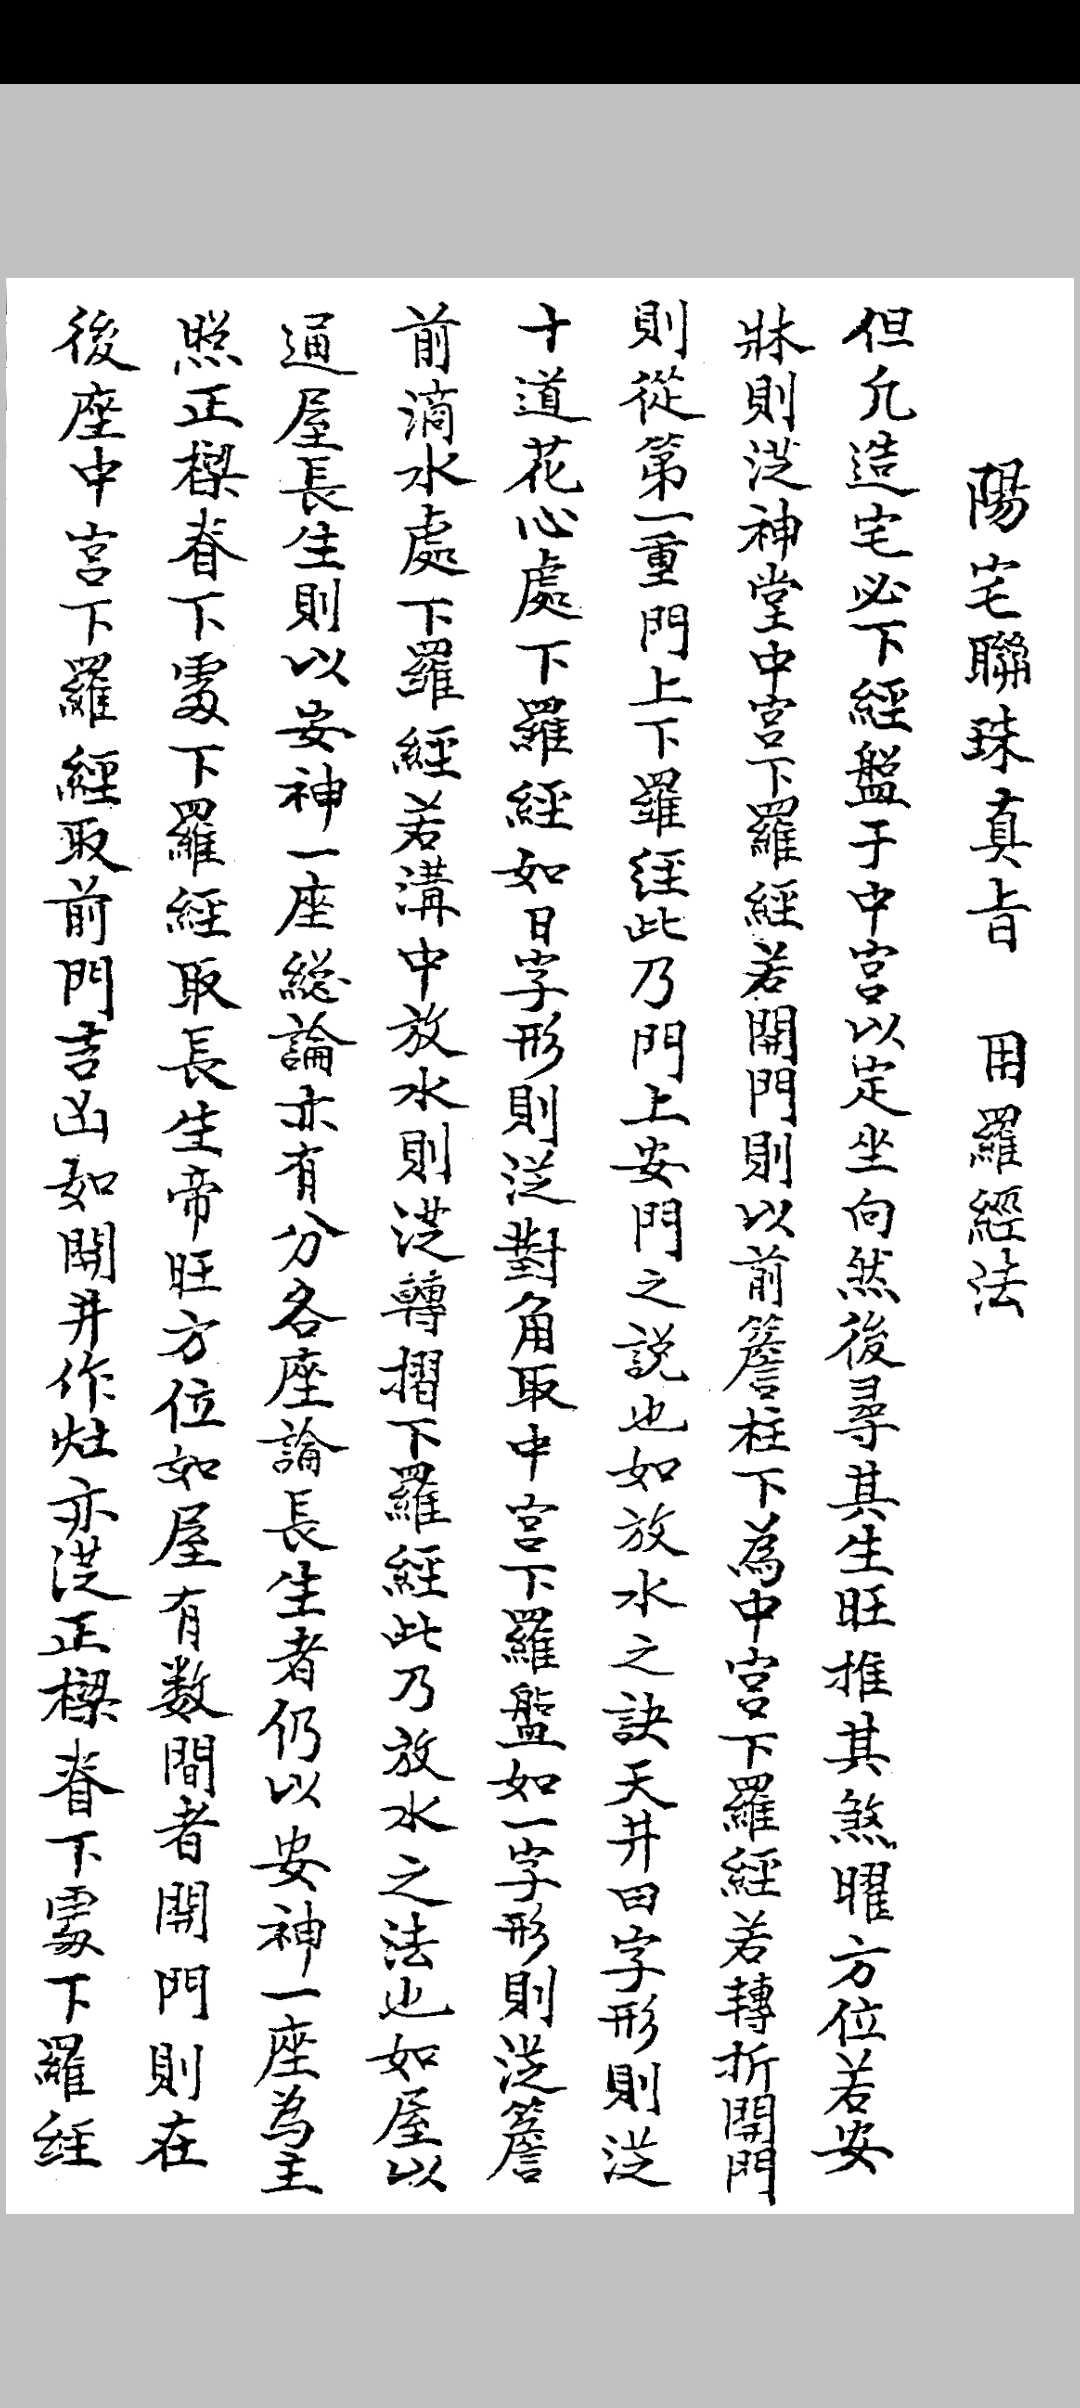 陽宅聯珠真旨　用羅經法
但凢造宅必下經盤于中宮以定坐向然後尋其生旺推其煞曜方位若安
牀則從神堂中宮下羅經若開門則以前簷柱下為中宮下羅經若轉折開門
則從第一重門上下羅経此乃門上安門之説也如放水之訣天井田字形則從
十道花心處下羅經如日字形則從對角取中宮下羅盤如一字形則從簷
前滴水處下羅經若溝中放水則從轉摺下羅經此乃放水之法也如屋以
通屋長生則以安神一座総論亦有分各座論長生者仍以安神一座為主
照正樑脊下處下羅經取長生帝旺方位如屋有数間者開門則在
後座中宮下羅經取前門吉凶如開井作灶亦從正樑脊下處下羅経